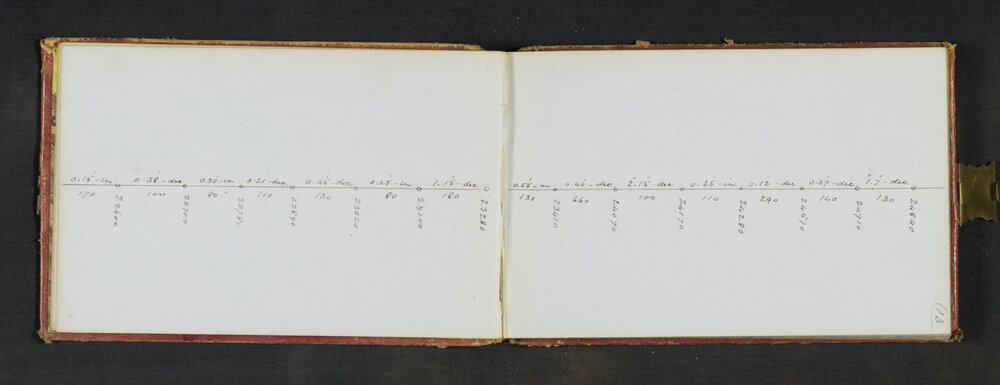 0.15'-in 0.38'-dec 0.30'-in 0.21'-dec 0.45'-dec 0.25'-in 1.15'-dec
170 100 80 110 130 80 180
22600 22700 22780 22890 23020 23100 23280
0.55'-in 0.40'-dec 2.15'-dec 0.25'-in 0.12'-dec 0.27'-dec 1.7'-dec
130 660 100 110 290 140 130
23410 24070 24170 24280 24570 24710 24840
13